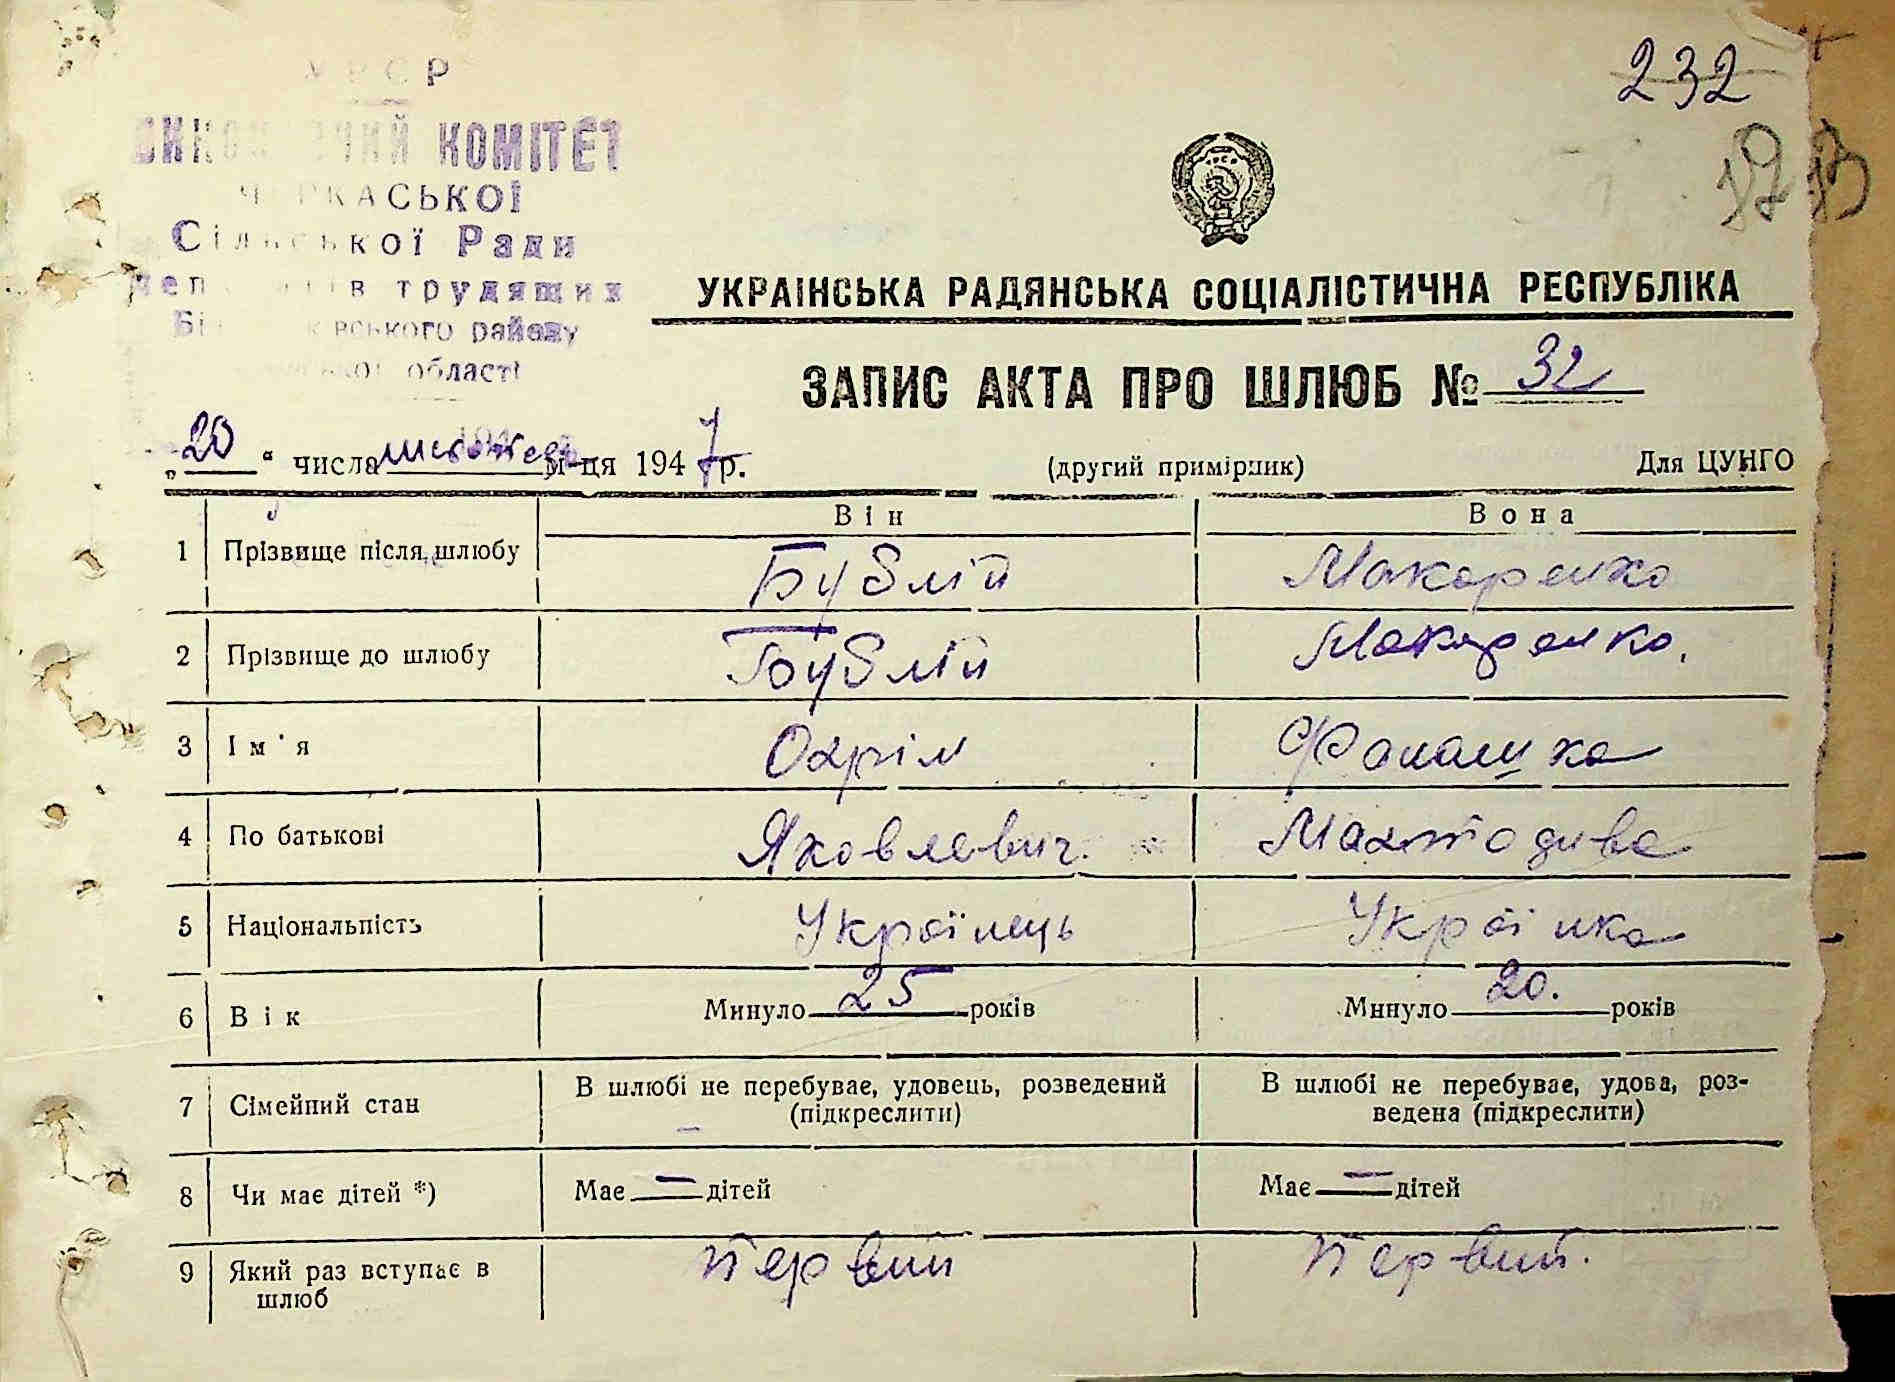 УРСР
232
ВИКОНАВЧИЙ КОМІТЕТ
ЧЕРКАСЬКОЇ
Сільської Ради
депутатів трудящих
району
області
УКРАІНСЬКА РАДЯНСЬКА СОЦІАЛІСТИЧНА РЕСПУБЛІКА
ЗАПИС АКТА ПРО ШЛЮБ № 32
„20“ числа м-ця 1947 р. (другий примірник) Для ЦУНГО
Він Вона
1 Прізвище після шлюбу Бублій Макаренко
2 Прізвище до шлюбу Бублій Макаренко.
3 Ім'я Охрім
4 По батькові Яковлевич.
5 Національність Українець Українка
6 Вік Минуло 25 років Минуло 20. років
7 Сімейний стан В шлюбі не перебуває, удовець, розведений (підкреслити) В шлюбі не перебуває, удова, роз-
ведена (підкреслити)
8 Чи має дітей *) Має — дітей Має — дітей
9 Який раз вступає в шлюб Первий Первий.